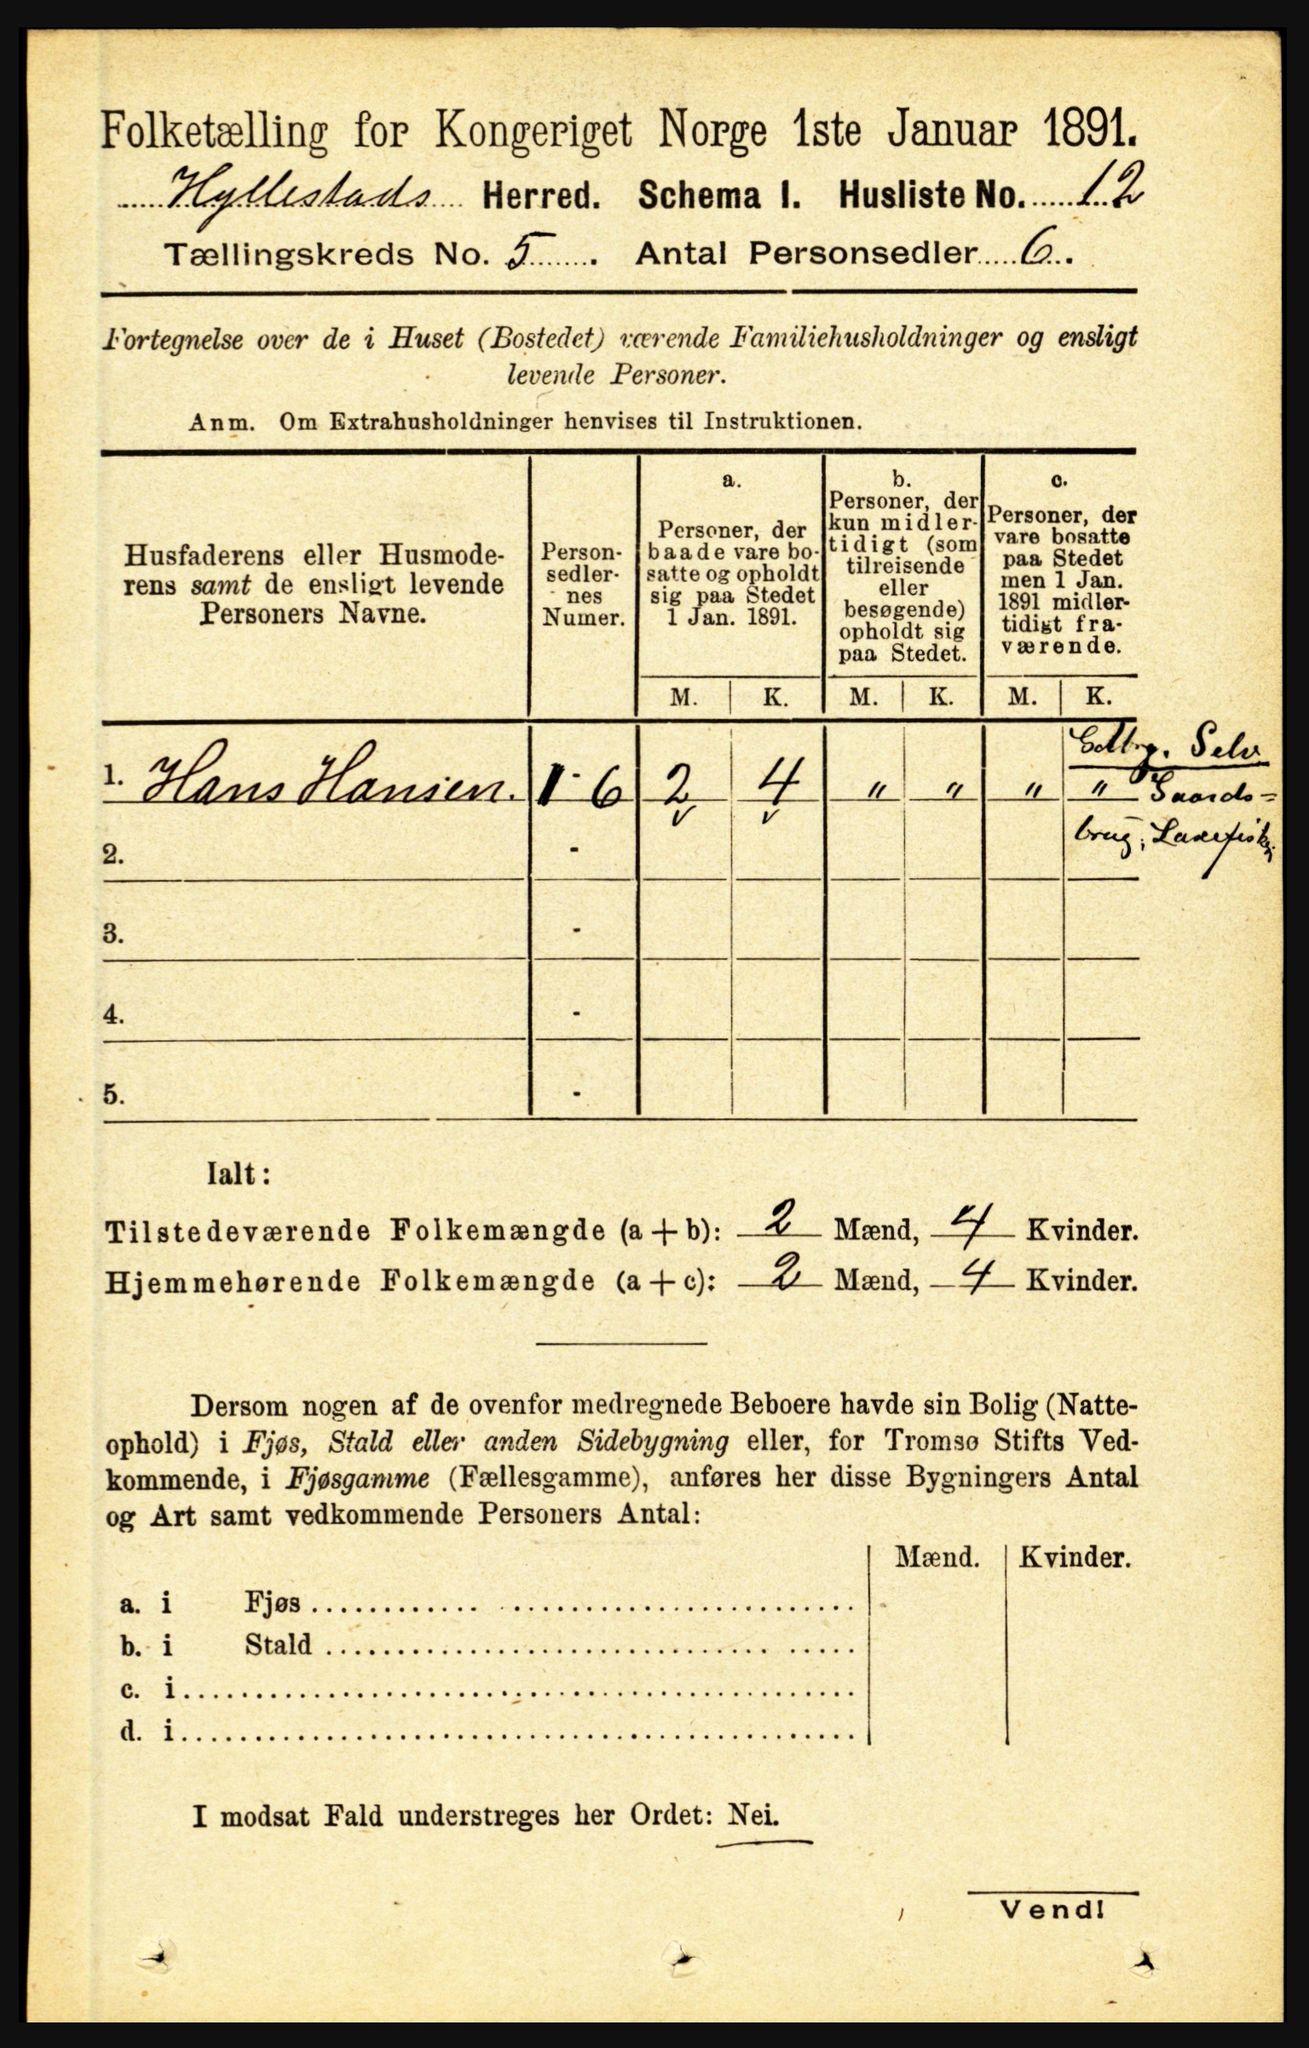 Folketælling for Kongeriget Norge 1ste Januar 1891.
Hyllestads Herred. Schema I. Husliste No. 12
Tællingskreds No. 5. Antal Personsedler 6.
Fortegnelse over de i Huset (Bostedet) værende Familiehusholdninger og ensligt
levende Personer.
Anm. Om Extrahusholdninger henvises til Instruktionen.
Husfaderens eller Husmode-
rens samt de ensligt levende
Personers Navne.
Person-
sedler-
nes
Numer.
a.
Personer, der
baade vare bo-
satte og opholdt
sig paa Stedet
1 Jan. 1891.
b.
Personer, der
kun midler-
tidigt (som
tilreisende
eller
besøgende)
opholdt sig
paa Stedet.
c.
Personer, der
vare bosatte
paa Stedet
men 1 Jan.
1891 midler-
tidigt fra-
værende.
M. K. M. K. M. K.
Selv
1. Hans Hansen. 1-6 2 4 " " " " Gaards-
brug, Laxefisk
2. -
3. -
4. -
5. -
Ialt:
Tilstedeværende Folkemængde (a+b): 2 Mænd, 4 Kvinder.
Hjemmehørende Folkemængde (a+c): 2 Mænd, 4 Kvinder.
Dersom nogen af de ovenfor medregnede Beboere havde sin Bolig (Natte-
ophold) i Fjøs, Stald eller anden Sidebygning eller, for Tromsø Stifts Ved-
kommende, i Fjøsgamme (Fællesgamme), anføres her disse Bygningers Antal
og Art samt vedkommende Personers Antal:
Mænd. Kvinder.
a. i Fjøs
b. i Stald
c. i
d. i
I modsat Fald understreges her Ordet: Nei.
Vend!